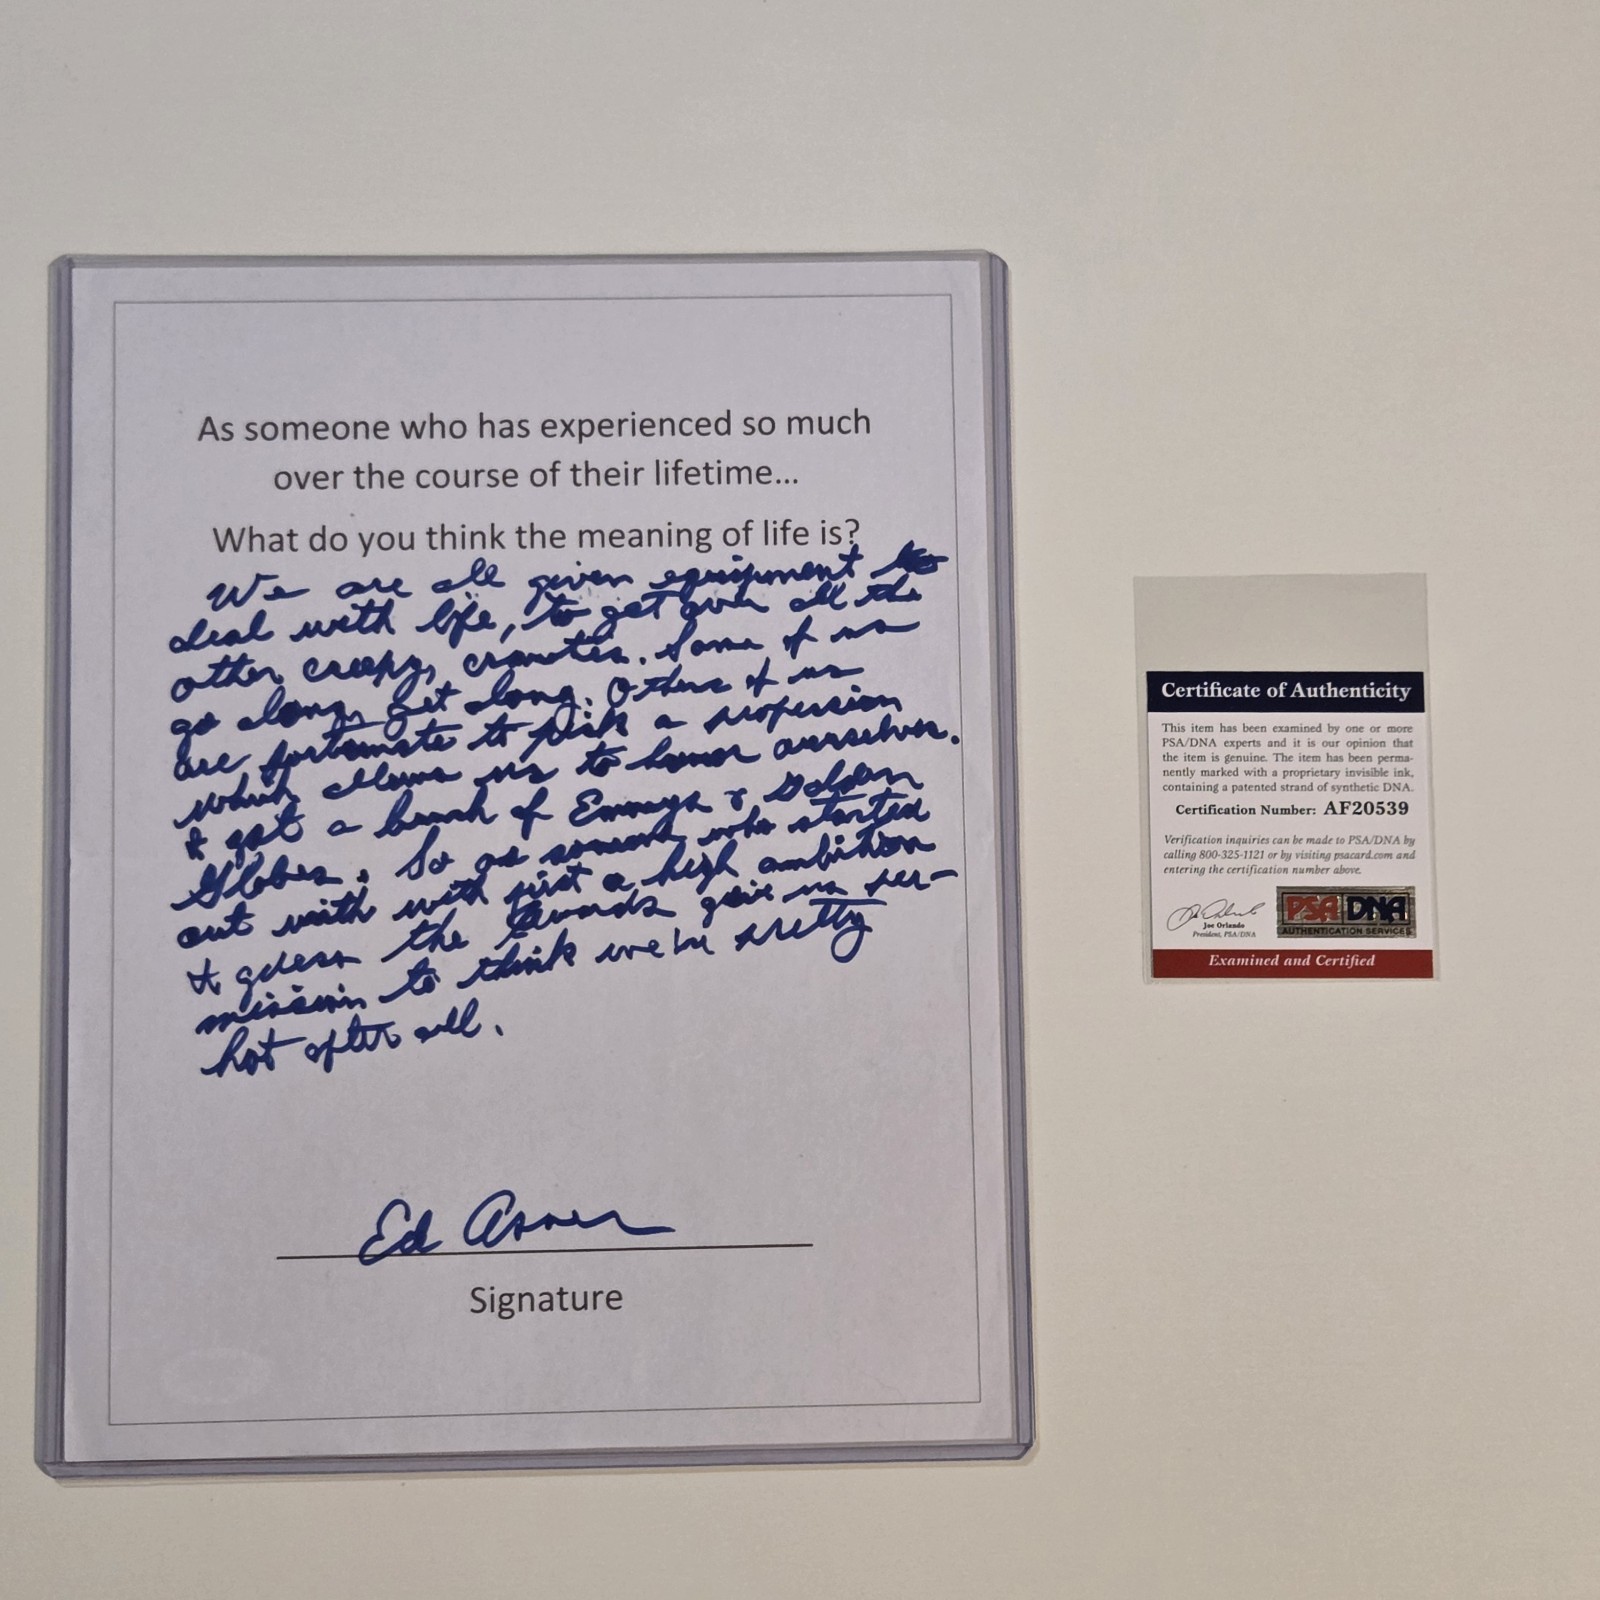 As someone who has experienced so much
over the course of their lifetime...
What do you think the meaning of life is?
We are all given equipment to
deal with life, to get over all the
other creepy, crawlies. Some of us
go along, get along. Others of us
are fortunate to pick a profession
which allows us to honor ourselves.
I got a bunch of Emmys & Golden
Globes. So as someone who started
out with with just a high ambition
I guess the Awards give us per-
mission to think we're pretty
hot after all.
Ed Asner
Signature
Certificate of Authenticity
This item has been examined by one or more
PSA/DNA experts and it is our opinion that
the item is genuine. The item has been perma-
nently marked with a proprietary invisible ink,
containing a patented strand of synthetic DNA.
Certification Number: AF20539
Verification inquiries can be made to PSA/DNA by
calling 800-325-1121 or by visiting psacard.com and
entering the certification number above.
Joe Orlando
President, PSA/DNA
PSA DNA
AUTHENTICATION SERVICES
Examined and Certified